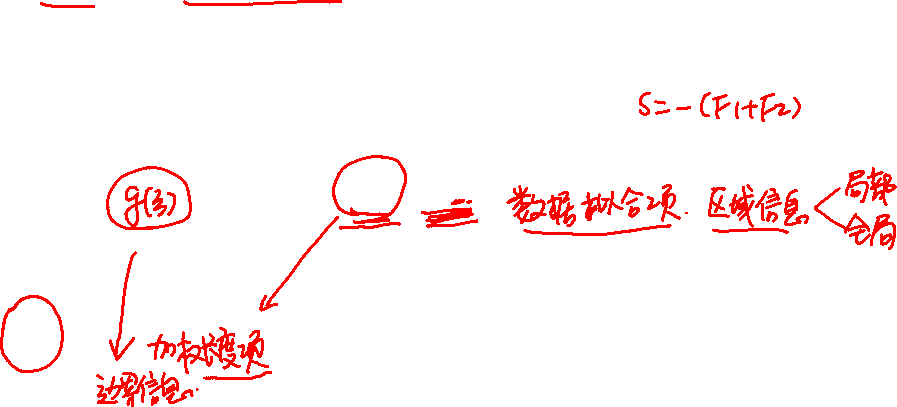 S=-(F1+F2)
数据拟合项. 区域信息
局部
全局
加权长度项
边界信息.